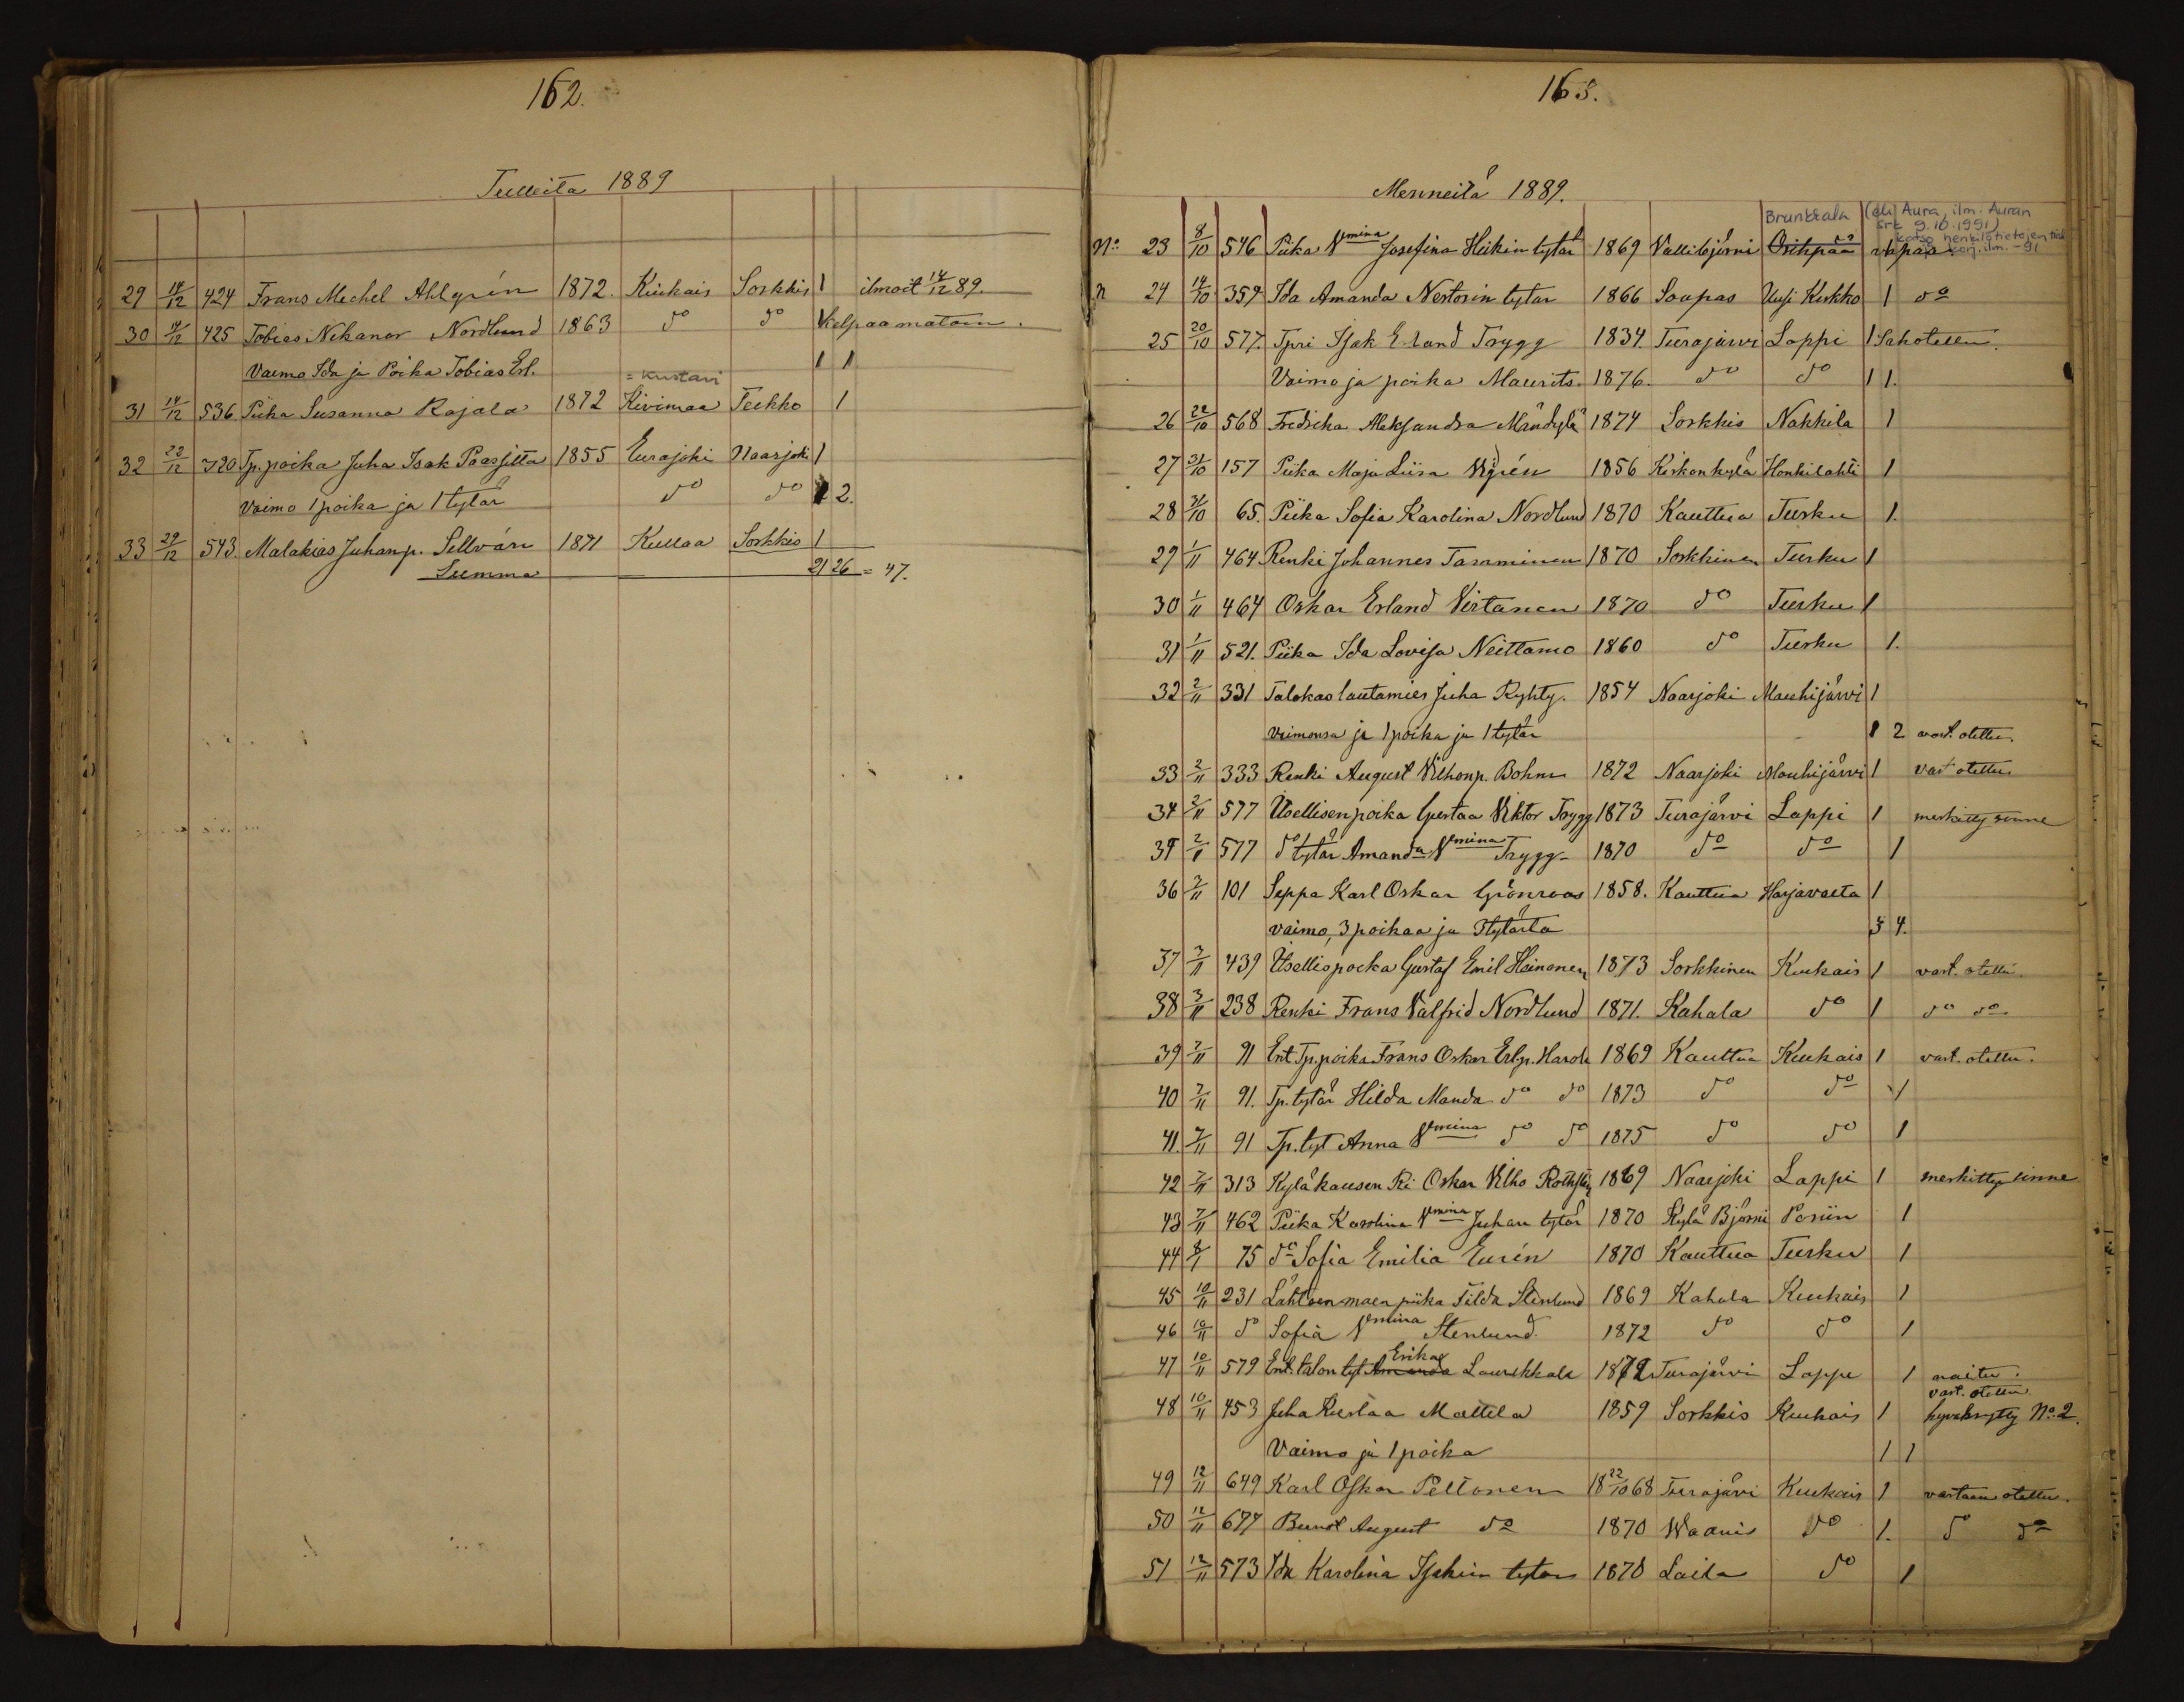 162.
Tulleita 1889
29 14/12 424 Frans Mechel Ahlgrén 1872. Kiukais Sorkkis 1 ilmoit 14/12 89.
30 14/12 425 Tobias Nikanor Nordlund 1863 do do Kelpaamatoin.
Vaimo Ida ja Poika Tobias Erl. 1 1
= Kustavi
31 14/12 536 Piika Susanna Rajala 1872 Kivimaa 1
32 22/12 720 Tp. poika Juha Isak 1855 Eurajoki Naarjoki 1
vaimo 1 poika ja 1 tytär do do 2.
33 29/12 543. Malakias Juhanp. Sellvän 1871 Kullaa Sorkkis 1
Summa 21 26 = 47.
163.
Menneitä 1889.
Brunkkala (eli) Aura, ilm. Auran
srk 9.10.1991)
katso henkilötietojen
korj. ilm. -91
No 23 8/10 546 Piika Vmina Josefina Heikin tytär 1869 Vallibjörni Orihpää
n 24 14/10 359 Ida Amanda Nestorin tytär 1866 Soupas Uusi Kirkko 1 do
25 20/10 577. Tpri Isak Erland Trygg 1834. Turajärvi Lappi 1
Vaimo ja poika Maurits. 1876. do do 1 1.
26 22/10 568 Fredrika Aleksandra Mändylä 1874 Sorkkis Nakkila 1
27 31/10 157 Piika Maja Liisa Vigrén 1856 Kirkonkylä Honkilahti 1
28 31/10 65. Piika Sofia Karolina Nordlund 1870 Kauttua Turku 1.
29 1/11 464 Renki Johannes Tamminen 1870 Sorkkinen Turku 1
30 1/11 464 Oskar Erland Virtanen 1870 do Turku 1
31 1/11 521. Piika Ida Lovisa Neittamo 1860 do Turku 1.
32 2/11 331 Talokas lautamies Juha Ryhty. 1854 Naarjoki Mauhijärvi 1
vaimonsa ja 1 poika ja 1 tytär 2 vast. otettu.
33 2/11 333 Renki August Vilhonp. Bohm 1872 Naarjoki Mouhijärvi 1 vast otettu.
34 2/11 577 Itsellisenpoika Gustaa Viktor Trygg 1873 Turajärvi Lappi 1 merkitty sinne
35 2/11 577 do tytär Amanda Vmina Trygg 1870 do do 1
36 2/11 101 Seppa Karl Oskar Grönroos 1858. Kauttua Harjavalta 1
vaimo, 3 poikaa ja 3 tytärtä 3 4.
37 3/11 439 Itsellispoika Gustaf Emil Heinonen 1873 Sorkkinen Kiukais 1 vast. otettu.
38 3/11 238 Renki Frans Valfrid Nordlund 1871. Kahala do 1 do do
39 7/11 91 Ent. Tp. poika Frans Oskar Erlp. 1869 Kauttua Kiukais 1 vast. otettu.
40 7/11 91. Tp. tytär Hilda Manda do do 1873 do do 1
41. 7/11 91 Tp. tyt Anna Vmina do do 1875 do do 1
42 7/11 313 Kyläkausen Ri Oskar Vilho 1869 Naarjoki Lappi 1 merkitty sinne
43 7/11 462 Piika Karolina Vmina Juhan tytär 1870 Kylä Björni Poriin 1
44 8/11 75 do Sofia Emilia Eurén 1870 Kauttua Turku 1
45 10/11 231 Lähteenmaen piika Tilda Stenlund 1869 Kahala Kiukais 1
46 10/11 do Sofia Vmina Stenlund. 1872 do do 1
47 10/11 579 Ent. talon tyt Amanda Erika Laurikkala 1872 Turajärvi Lappi 1 naitu.
vast. otettu.
48 10/11 453 Juha Kustaa Mattila 1859 Sorkkis Kiukais 1 hyväksytty No 2.
Vaimo ja 1 poika 1 1
49 12/11 649 Karl Oskar Peltonen 18 22/10 68 Turajärvi Kiukais 1 vastaan otettu.
50 12/11 677 August do 1870 Waanii do 1. do do
51 12/11 573 Ida Karolina Isakin tytär 1870 Laila do 1